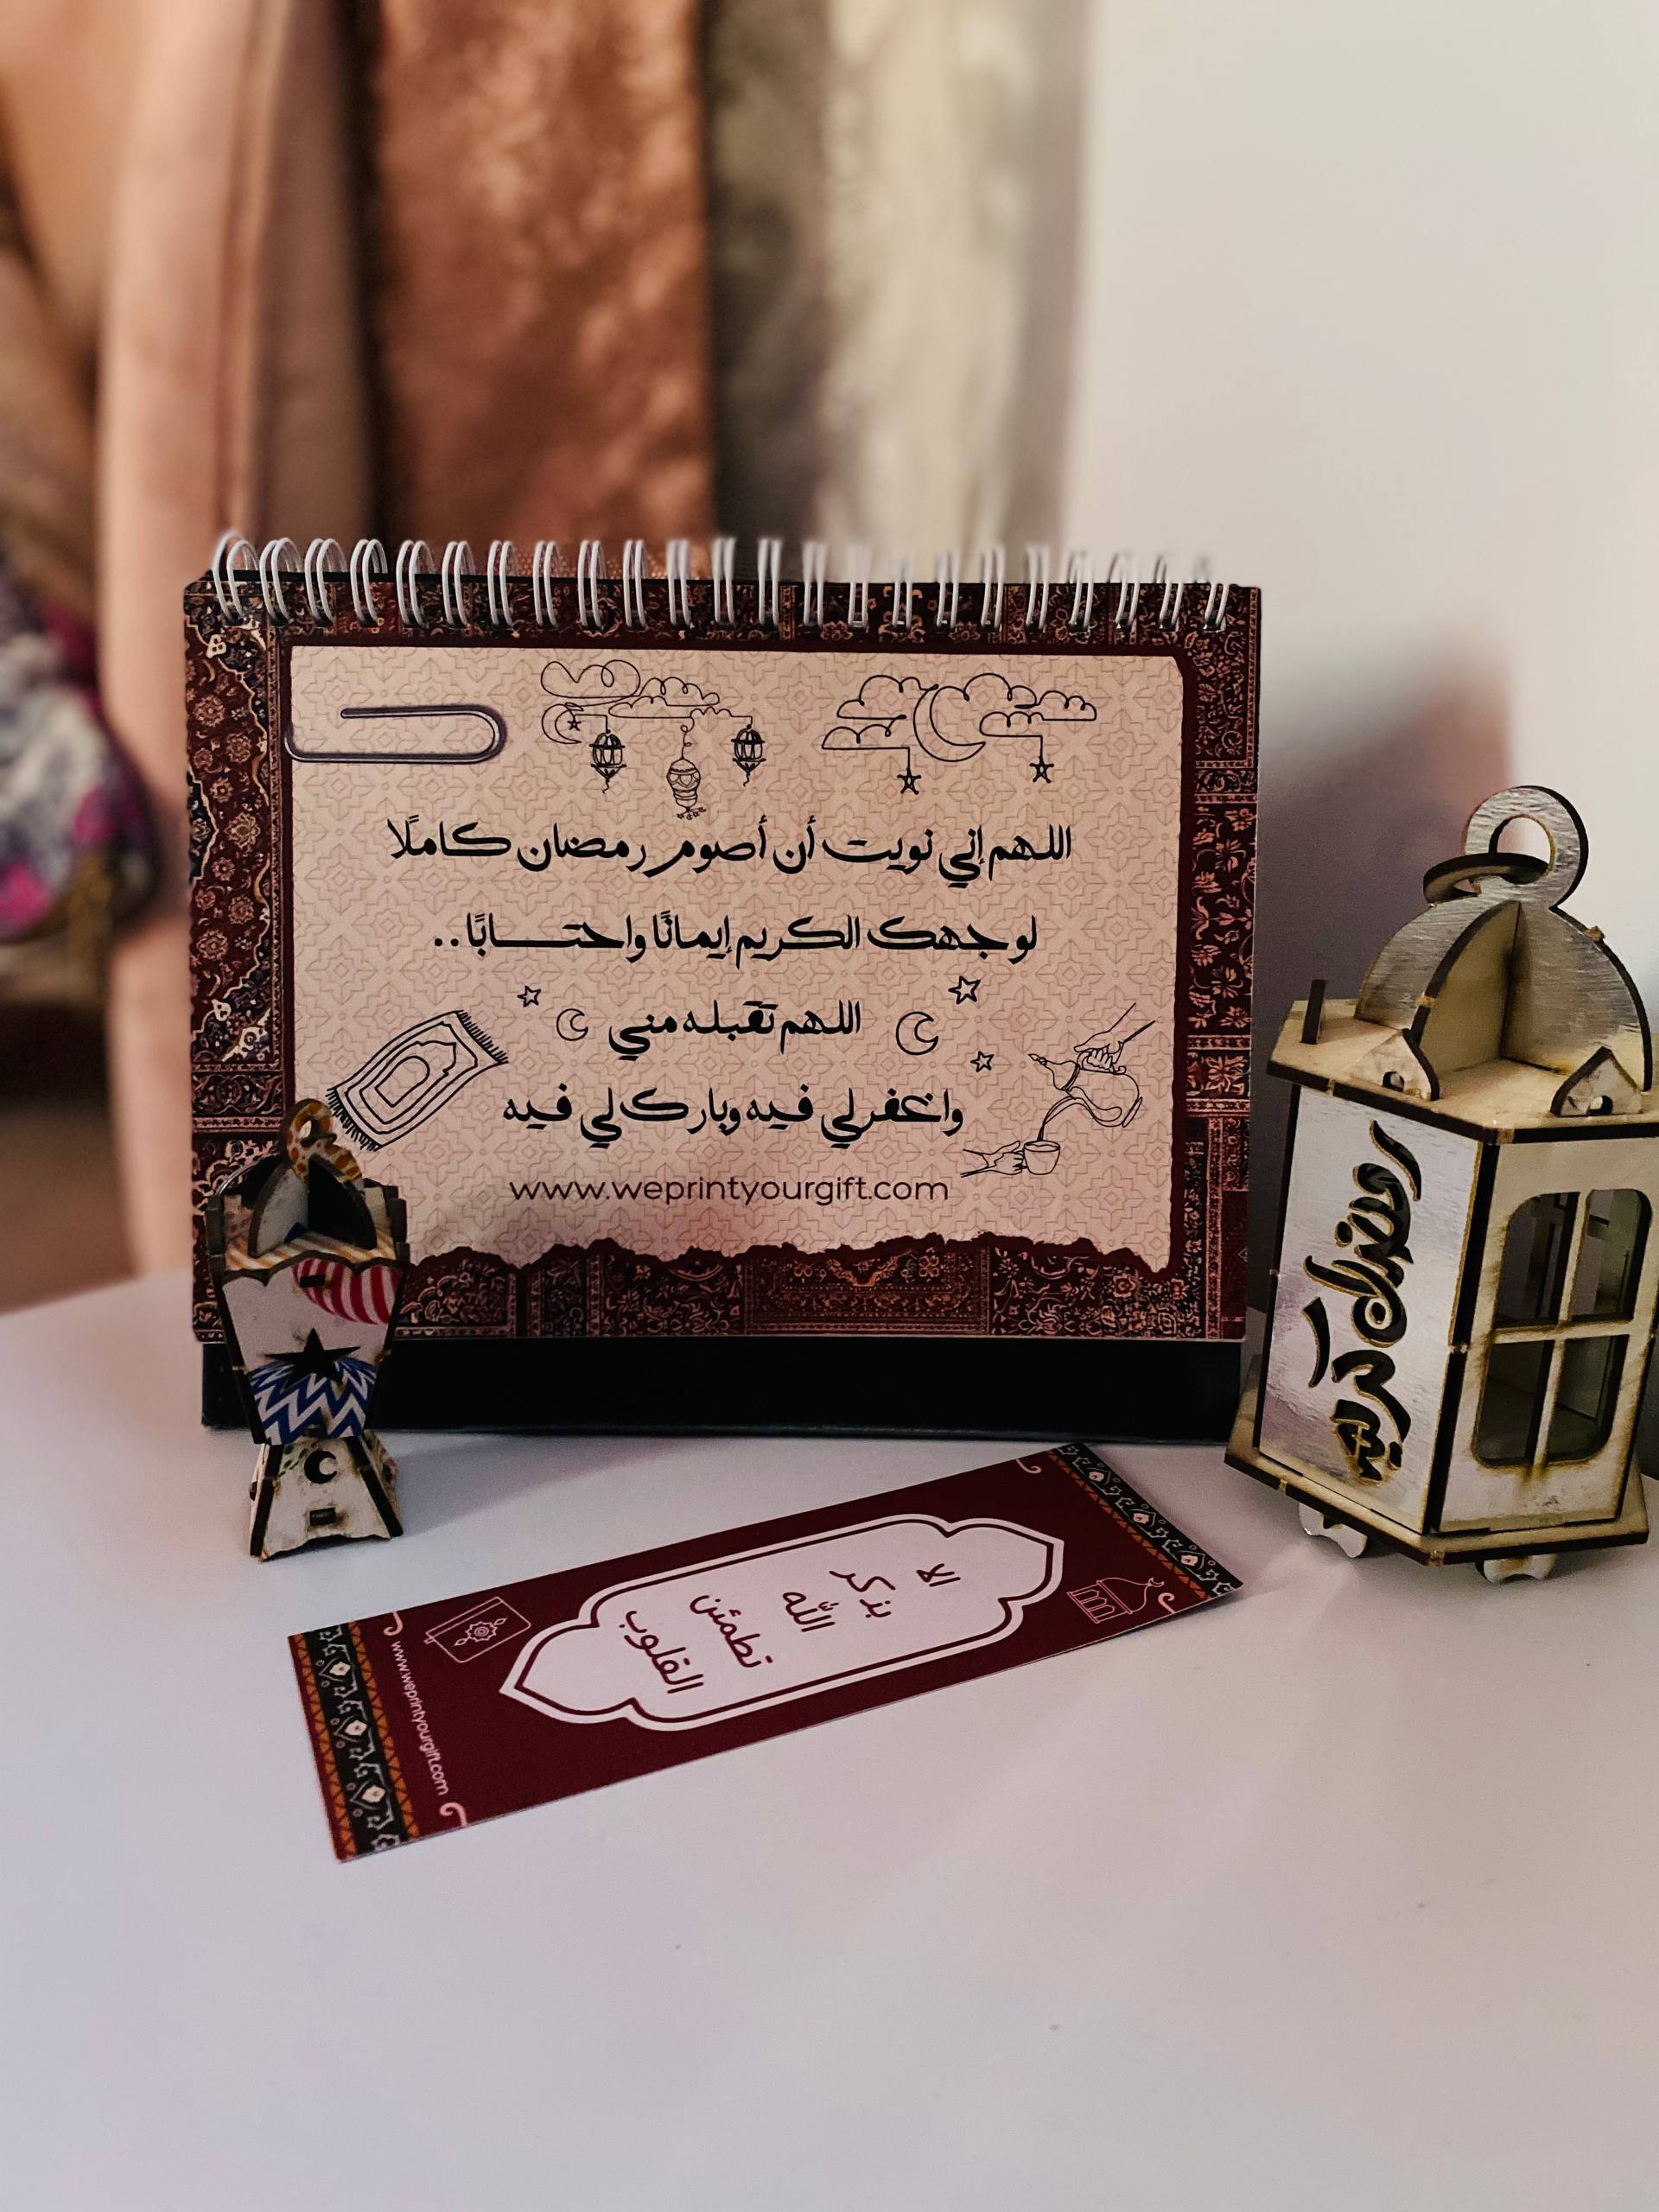 اللهم إني نويت أن أصوم رمضان كاملًا
لوجهك الكريم إيمانًا واحتسابًا..
اللهم تقبله مني
واغفرلي فيه وبارك لي فيه
www.weprintyourgift.com
رمضان كريم
الا
بذكر
الله
تطمئن
القلوب
www.weprintyourgift.com